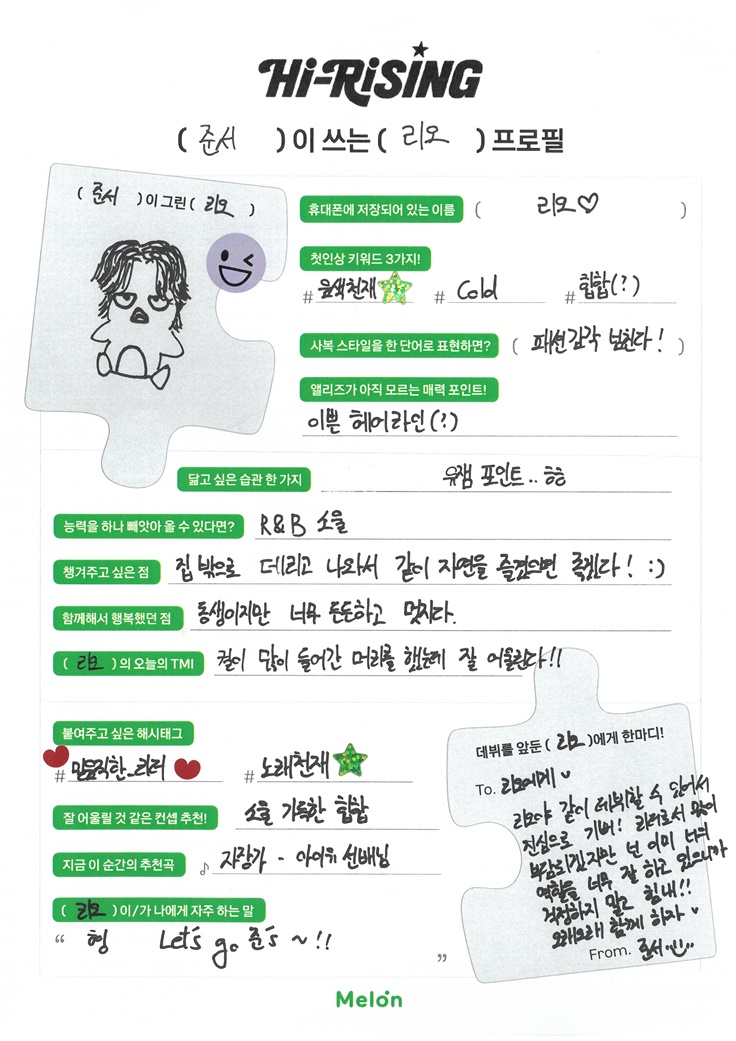 Hi-RiSiNG
( 준서 ) 이 쓰는 ( 리오 ) 프로필
( 준서 ) 이 그린 ( 리오 )
휴대폰에 저장되어 있는 이름 ( 리오♡ )
첫인상 키워드 3가지!
# 음색천재 # Cold # 힙합(?)
사복 스타일을 한 단어로 표현하면? ( 패션감각 넘친다! )
앨리즈가 아직 모르는 매력 포인트!
이쁜 헤어라인(?)
닮고 싶은 습관 한 가지 유잼 포인트.. ㅎㅎ
능력을 하나 빼앗아 올 수 있다면? R&B 소울
챙겨주고 싶은 점 집 밖으로 데리고 나와서 같이 자연을 즐겼으면 좋겠다! :)
함께해서 행복했던 점 동생이지만 너무 든든하고 멋지다.
( 리오 ) 의 오늘의 TMI 컬이 많이 들어간 머리를 했는데 잘 어울린다!!
붙여주고 싶은 해시태그
# 믿음직한_리더 # 노래천재
잘 어울릴 것 같은 컨셉 추천! 소울 가득한 힙합
지금 이 순간의 추천곡 ♪ 자장가 - 아이유 선배님
( 리오 ) 이/가 나에게 자주 하는 말
“ 형 Let's go 준's ~!! ”
데뷔를 앞둔 ( 리오 )에게 한마디!
To. 리오에게
리오야 같이 데뷔할 수 있어서
진심으로 기뻐! 리더로서 많이
부담되겠지만 넌 이미 너의
역할을 너무 잘 하고 있으니까
걱정하지 말고 힘내!!
오래오래 함께 하자
From. 준서
Melon